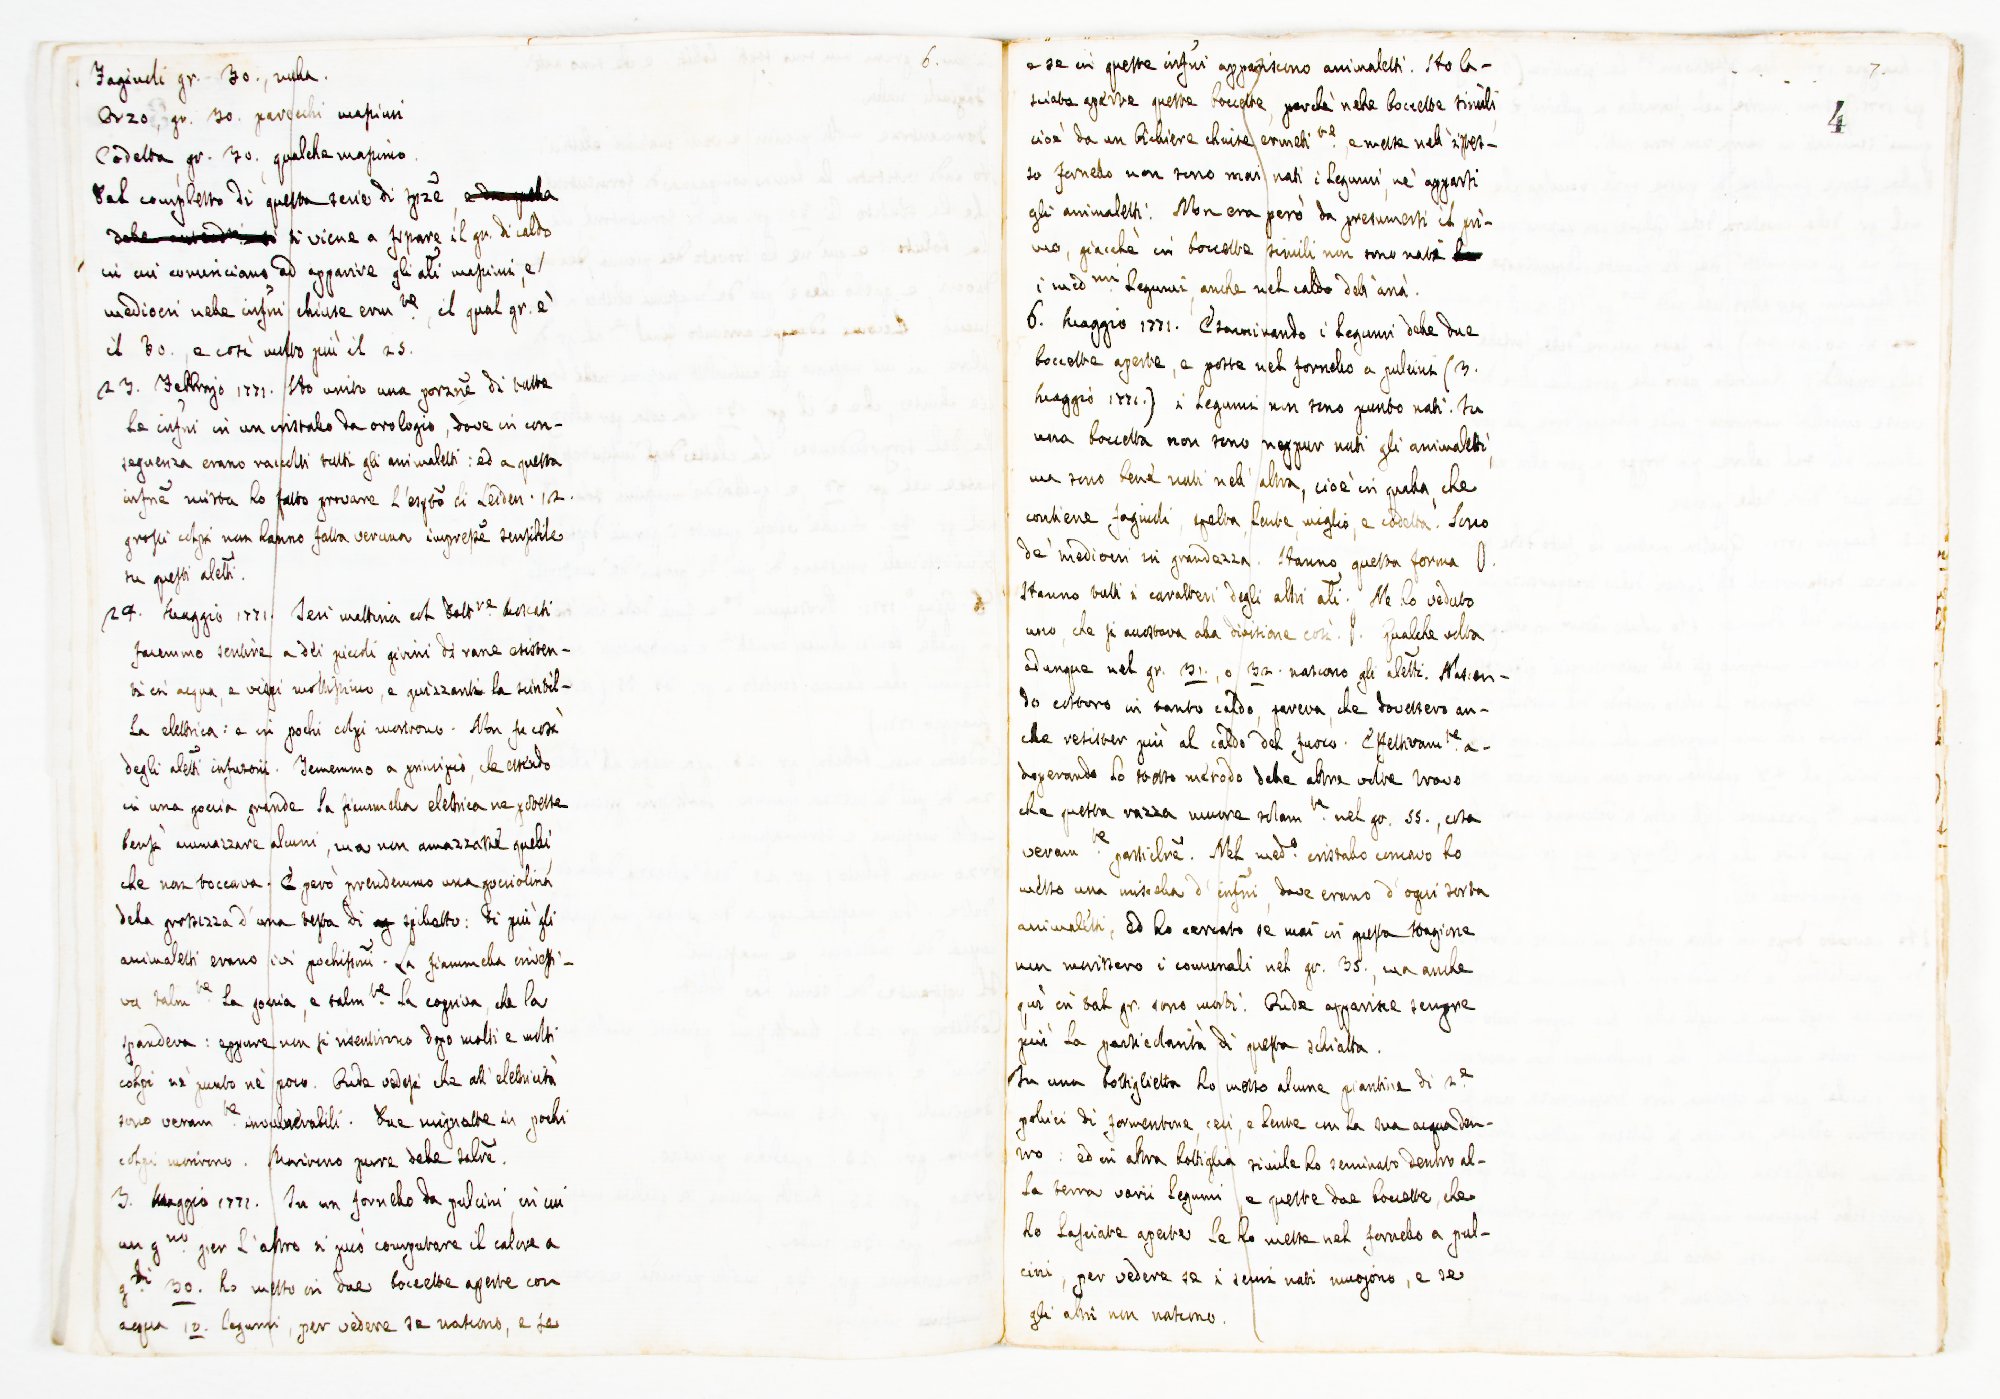 6.
Fagiuoli gr. 30., nulla.
Orzo, gr. 30. parecchi massimi
Codetta, gr. 30, qualche massimo.
Dal complesso di questa serie di spzẽ, e da quella
delle si viene a fissare il gr. di caldo
in cui cominciano ad apparire gli alĩ massimi, e
mediocri nelle infñi chiuse erm.te, il qual gr. è
il 30., e così molto più il 25.
23. Febbrajo 1771. Ho unito una porznẽ di tutte
le infñi in un cristallo da orologio, dove in con-
seguenza erano raccolti tutti gli animaletti: ed a questa
infnẽ mista ho fatto provare l'esptõ di Leiden. 12.
grossi colpi non hanno fatta veruna impressẽ sensibile
su questi alettĩ.
24. Maggio 1771. Ieri mattina col Dott.re Moscati
facemmo sentire a dei piccoli girini di rane esisten-
ti in acqua, e vispi moltissimo, e guizzanti la scintil-
la elettrica: e in pochi colpi morirono. Non fu così
degli alettĩ infusorj. Tememmo a principio, che essendo
in una goccia grande la fiammella elettrica ne potesse
bensì ammazzare alcuni, ma non amazzasse quelli
che non toccava. E però prendemmo una gocciolina
della grossezza d'una testa di spilletto: di più gli
animaletti erano ivi pochissimĩ. La fiammella investi-
va talm.te la goccia, e talm.te la copriva, che la
spandeva: eppure non si risentirono dopo molti e molti
colpi nè punto nè poco. Qude vedesi che all'elettricità
sono veram.te invulnerabili. Due mignatte in pochi
colpi morirono. Morirono pure delle salrẽ.
3. Maggio 1771. In un fornello da pulcini, in cui
un g.no per l'altro si può computare il calore a
g.di 30. ho messo in due boccette aperte con
acqua 10. legumi, per vedere se nascono, e se
7.
4
e se in queste infñi appariscono animaletti. Ho la-
sciate aperte queste boccette, perchè nelle boccette simili,
cioè da un bichiere chiuse ermeti.te, e messe nell'istes-
so fornello non sono mai nati i legumi, nè apparsi
gli animaletti. Non era però da presumersi il pri-
mo, giacchè in boccette simili non sono nati
i med.mi legumi, anche nel caldo dell'aria.
6. Maggio 1771. Esaminando i legumi delle due
boccette aperte, e poste nel fornello a pulcini (3.
Maggio 1771.) i legumi non sono punto nati. In
una boccetta non sono neppur nati gli animaletti,
ma sono bene nati nell'altra, cioè in quella, che
contiene fagiuoli, spelta, lente, miglio, e codetta. Sono
de' mediocri in grandezza. Hanno questa forma 0.
Hanno tutti i caratteri degli altri alĩ. Ne ho veduto
uno, che si accostava alla divisione così. 8. Qualche volta
adunque nel gr. 31., o 32. nascono gli alettĩ. Nascen-
do costoro in tanto caldo, pareva, che dovessero an-
che resister più al caldo del fuoco. Effettivam.te a-
doperando lo stesso metodo delle altre volte trovo
che questa razza muore solam.te nel gr. 35., cosa
veram.te particlrẽ. Nel med.o cristallo concavo ho
messo una miscella d'infñi, dove erano d'ogni sorta
animaletti, ed ho cercato se mai in questa stagione
non morissero i comunali nel gr. 35., ma anche
quì in tal gr. sono morti. Qude apparisce sempre
più la particlarità di questa schiatta.
In una bottiglietta ho messo alcune piantine di 2.e
pollici di formentone, ceci, e lente con la sua acqua den-
tro: ed in altra bottiglia simile ho seminato dentro al-
la terra varii legumi, e queste due boccette, che
ho lasciate aperte le ho messe nel fornello a pul-
cini, per vedere se i semi nati muojono, e se
gli altri non nascono.